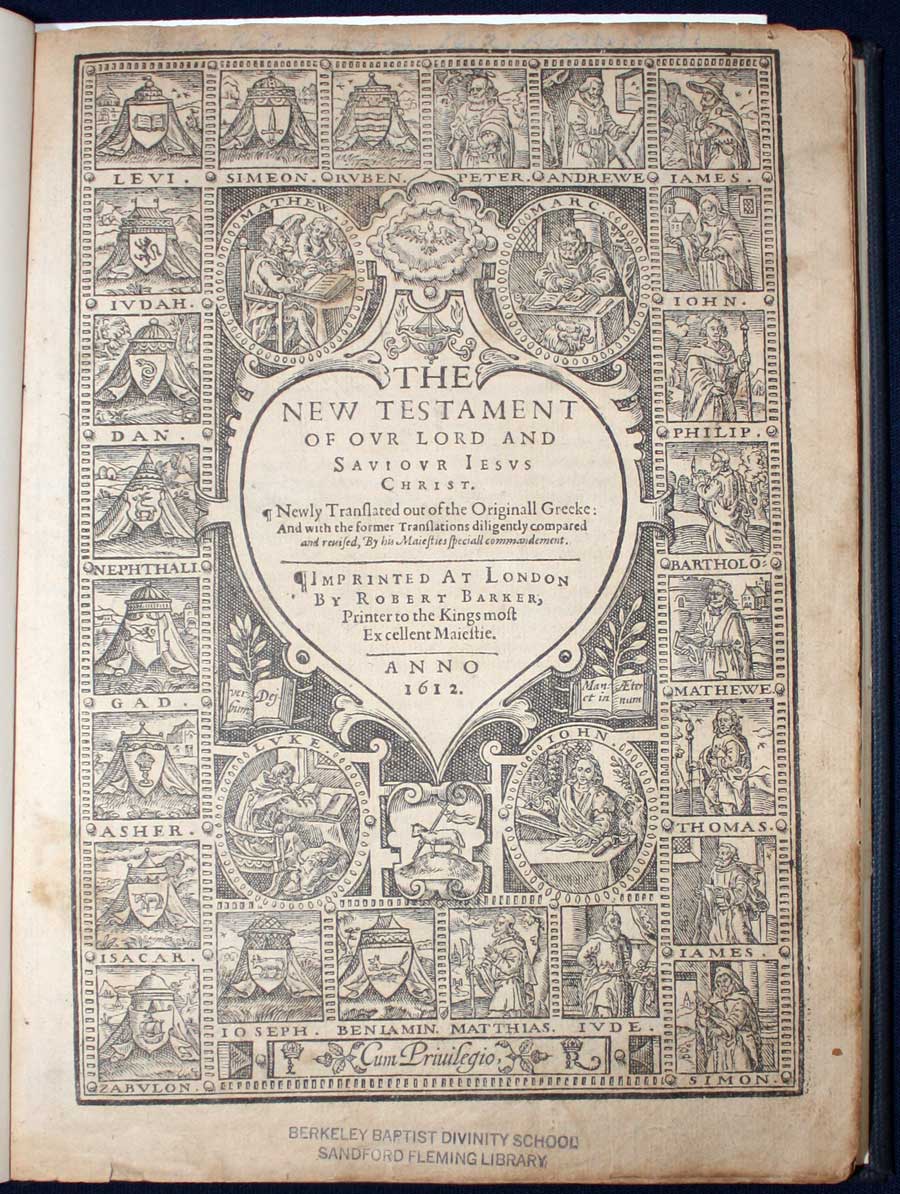 LEVI.
SIMEON.
RVBEN.
PETER.
ANDREWE
IAMES.
MATHEW.
MARC.
IVDAH.
IOHN.
DAN.
PHILIP.
NEPHTHALI.
BARTHOLO=
GAD.
MATHEWE.
ASHER.
THOMAS.
ISACAR.
IAMES.
ZABVLON.
SIMON.
THE
NEW TESTAMENT
OF OVR LORD AND
SAVIOVR IESVS
CHRIST.
¶ Newly Tranſlated out of the Originall Greeke:
And with the former Tranſlations diligently compared
and reuiſed, By his Maieſties ſpeciall commandement.
¶ IMPRINTED AT LONDON
BY ROBERT BARKER,
Printer to the Kings moſt
Excellent Maieſtie.
ANNO
1612.
ver=
bum
Dej
Man=
et in
Æter
=num
LVKE.
IOHN.
IOSEPH.
BENIAMIN.
MATTHIAS.
IVDE.
Cum Priuilegio,
R
BERKELEY BAPTIST DIVINITY SCHOOL
SANDFORD FLEMING LIBRARY